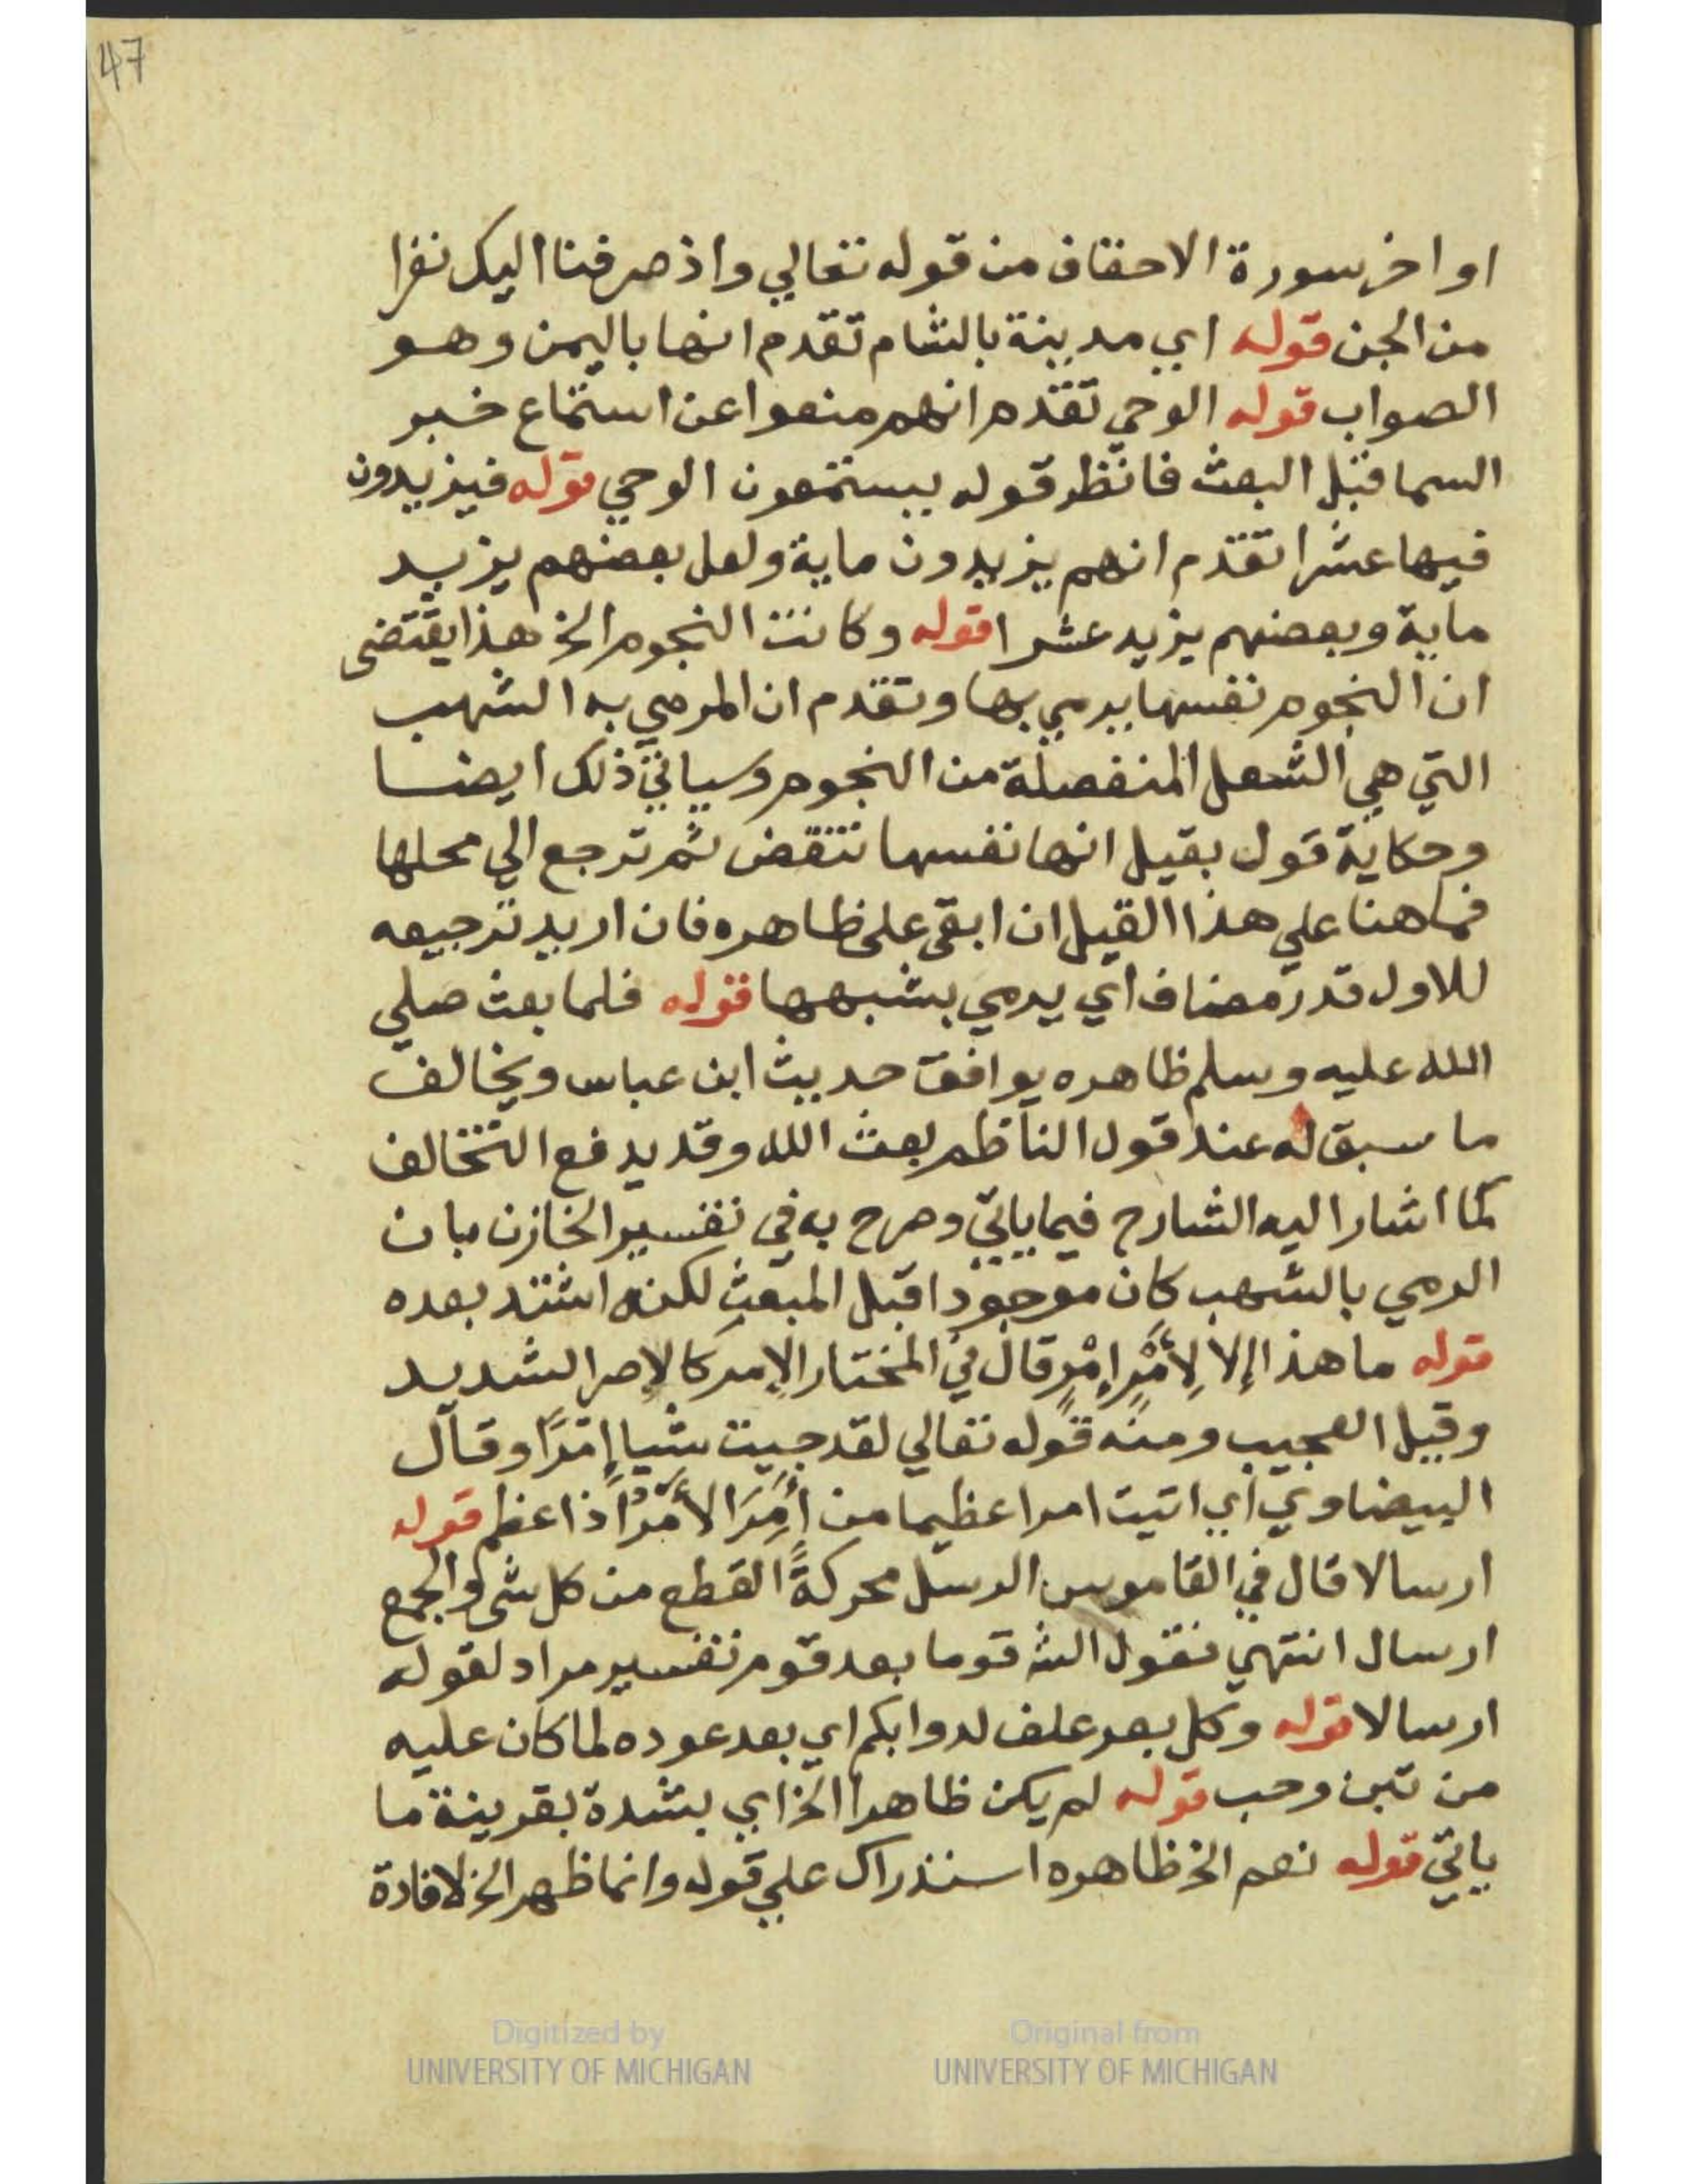 47
اواخر سورة الاحقاف من قوله تعالي واذ صرفنا اليك نفرا
من الجن قوله اي مدينة بالشام تقدم انها باليمن وهو
الصواب قوله الوحي تقدم انهم منعوا عن استماع خبر
السما قبل البعث فانظر قوله يستمعون الوحي قوله فيزيدون
فيها عشرا تقدم انهم يزيدون ماية ولعل بعضهم يزيد
ماية وبعضهم يزيد عشرا قوله وكانت النجوم الخ هذا يقتضى
ان النجوم نفسها يرمي بها وتقدم ان المرمي به الشهب
التي هي الشعل المنفصلة من النجوم وسياتي ذلك ايضا
وحكاية قول بقيل انها نفسها تنقض ثم ترجع الي محلها
فما هنا علي هذا القيل ان ابقى على ظاهره فان اريد ترجيعه
للاول قدر مضاف اي يرمي بشبهها قوله فلما بعث صلي
الله عليه وسلم ظاهره يوافق حديث ابن عباس ويخالف
ما سبق له عند قول الناظم بعث الله وقد يدفع التخالف
كما اشار اليه الشارح فيما ياتي وصرح به في تفسير الخازن بان
الرمي بالشهب كان موجودا قبل المبعث لكنه اشتد بعده
قوله ما هذا إلا لِأَمْرٍ إِمْرٍ قال في المختار الإمر كالإصر الشديد
وقيل العجيب ومنه قوله تعالي لقد جيت شيا إمْرًا وقال
البيضاوي اي اتيت امرا عظيما من أَمِرَ الأمْرُ اذا عظم قوله
ارسالا قال في القاموس الرسل محركةً القطع من كل شى والجمع
ارسال انتهي فقول الشـ قوما بعد قوم تفسير مراد لقوله
ارسالا قوله وكل بعر علف لدوابكم اي بعد عوده لما كان عليه
من تبن وحب قوله لم يكن ظاهرا الخ اي بشدة بقرينة ما
ياتي قوله نعم الخ ظاهره استدراك علي قوله وانما ظهر الخ لافادة
Digitized by
UNIVERSITY OF MICHIGAN
Original from
UNIVERSITY OF MICHIGAN